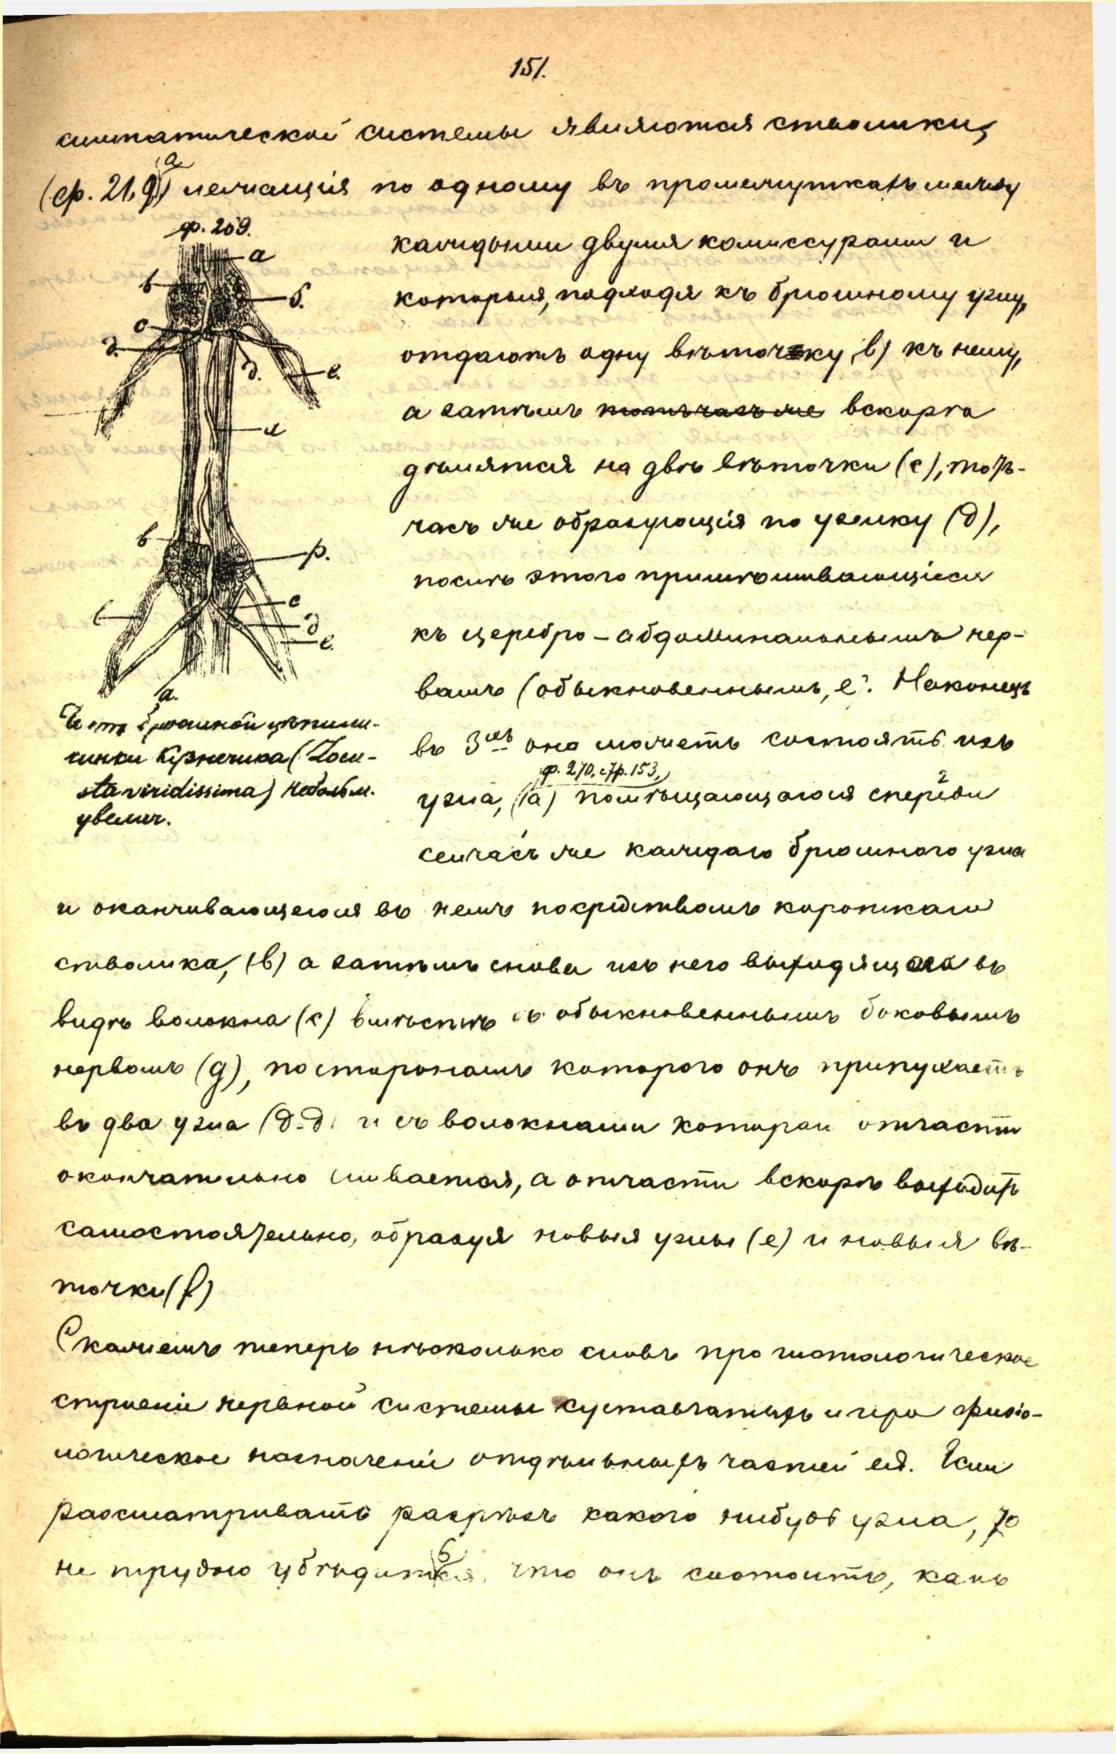 151.
симпатической системы являются стволики,
(ф. 21, g) a лежащія по одному въ промежуткахъ между
ф. 209.
каждыми двумя комиссурами и
которыя, подходя къ брюшному узлу,
отдаютъ одну вѣточку, b) къ нему,
а затѣмъ тотчасъ же вскорѣ
дѣлятся на двѣ вѣточки (c), тот-
часъ же образующія по узелку (d),
послѣ этого примѣшивающіеся
къ церебро-абдоминальнымъ нер-
вамъ (обыкновеннымъ, e). Наконецъ
въ 3мъ она можетъ состоять изъ
ф. 270, стр. 153,
узла, (a) помѣщающагося спереди
сейчасъ же каждаго брюшного узла
a
b
б.
c
d.
d.
e.
a
b
p.
c
d
e.
a.
Часть брюшной цѣпи ли-
чинки кузнечика (Locu-
sta viridissima) небольш.
увелич.
и оканчивающегося въ немъ посредствомъ короткаго
стволика, (b) а затѣмъ снова изъ него выходящаго въ
видѣ волокна (c) вмѣстѣ съ обыкновеннымъ боковымъ
нервомъ (g), по сторонамъ котораго онъ припухаетъ
въ два узла (d-d) и съ волокнами котораго отчасти
окончательно сливается, а отчасти вскорѣ выходитъ
самостоятельно, образуя новыя узлы (e) и новыя вѣ-
точки (f)
Скажемъ теперь нѣсколько словъ про гистологическое
строеніе нервной системы суставчатыхъ и про физіо-
логическое назначеніе отдѣльныхъ частей ея. Если
рассматривать разрѣзъ какого нибудь узла, то
не трудно убѣдиться, что онъ состоитъ, какъ